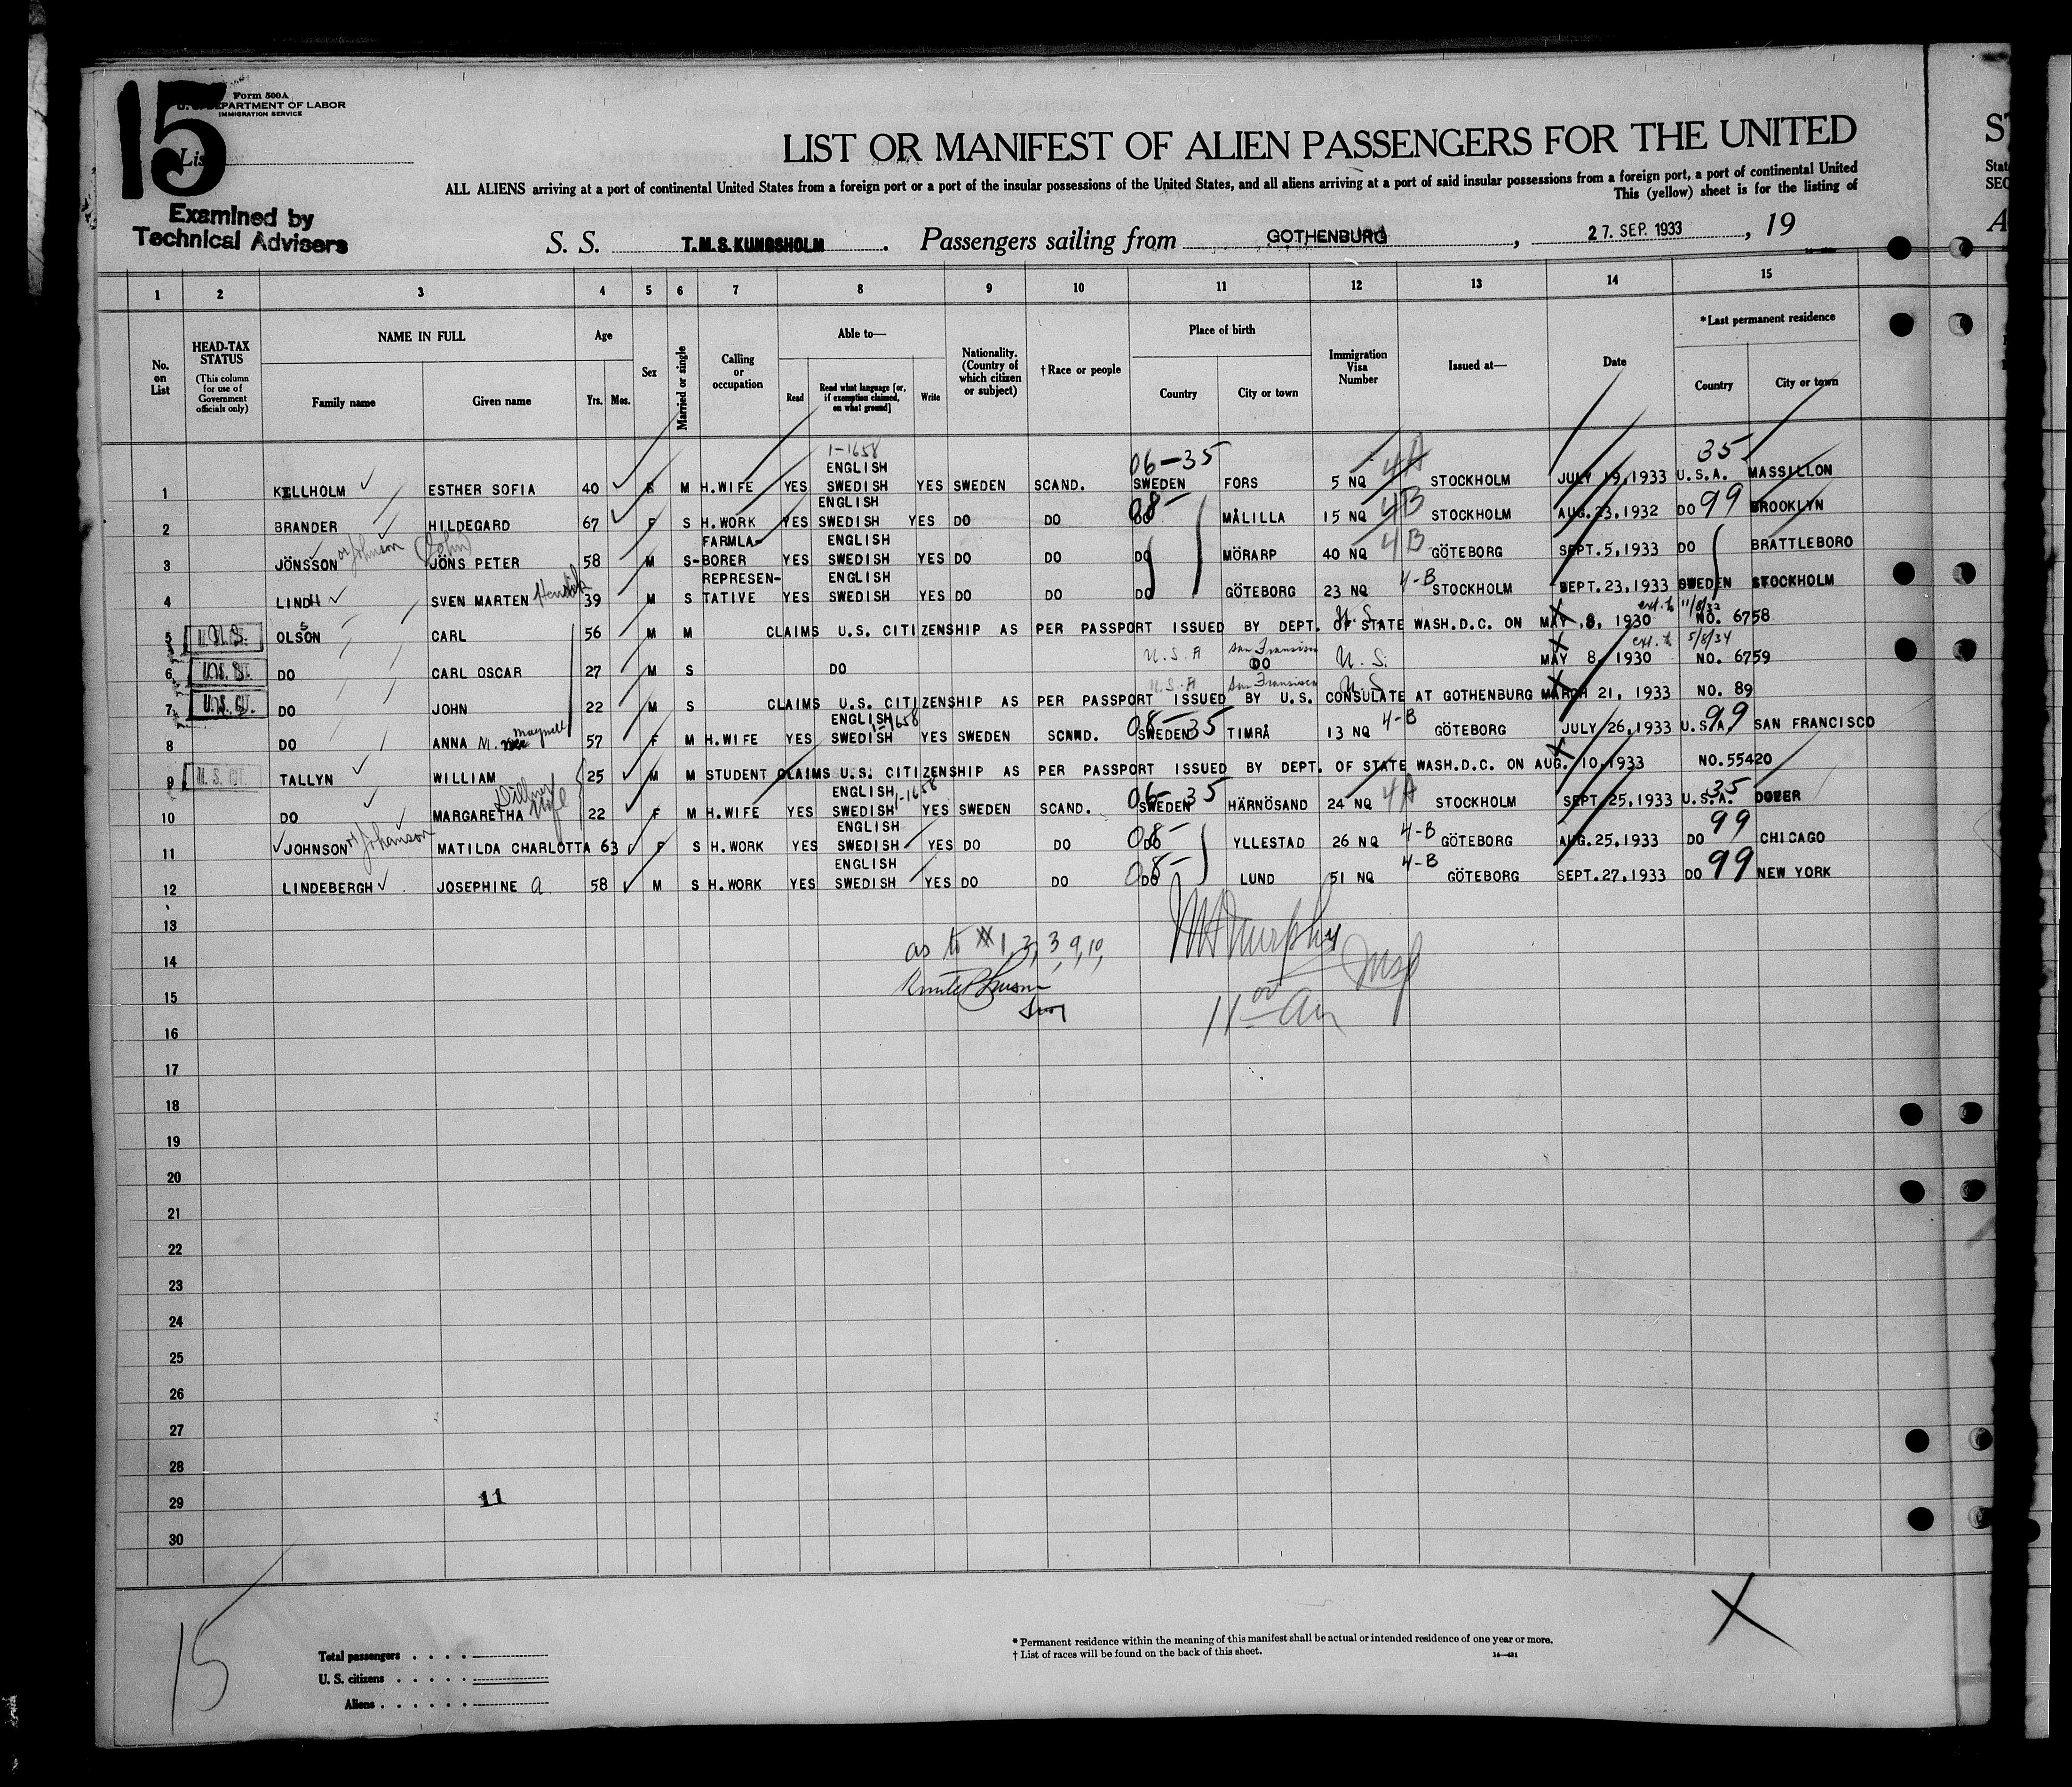 15
Form 500A
U. S. DEPARTMENT OF LABOR
IMMIGRATION SERVICE
List
LIST OR MANIFEST OF ALIEN PASSENGERS FOR THE UNITED
ALL ALIENS arriving at a port of continental United States from a foreign port or a port of the insular possessions of the United States, and all aliens arriving at a port of said insular possessions from a foreign port, a port of continental United
This (yellow) sheet is for the listing of
Examined by
Technical Advisers
S. S. T.M.S. KUNGSHOLM. Passengers sailing from GOTHENBURG, 27. SEP. 1933, 19
1 2 3 4 5 6 7 8 9 10 11 12 13 14 15
No. on List
HEAD-TAX STATUS (This column for use of Government officials only)
NAME IN FULL Family name Given name
Age Yrs. Mos.
Sex
Married or single
Calling or occupation
Able to— Read Read what language [or, if exemption claimed, on what ground] Write
Nationality. (Country of which citizen or subject)
† Race or people
Place of birth Country City or town
Immigration Visa Number
Issued at—
Date
*Last permanent residence Country City or town
1-1658 06-35 4A 35
1 KELLHOLM ESTHER SOFIA 40 F M H.WIFE YES ENGLISH SWEDISH YES SWEDEN SCAND. SWEDEN FORS 5 NQ STOCKHOLM JULY 19,1933 U.S.A. MASSILLON
2 BRANDER HILDEGARD 67 F S H.WORK YES ENGLISH SWEDISH YES DO DO 08- DO MÅLILLA 15 NQ 4B STOCKHOLM AUG.23,1932 DO 99 BROOKLYN
3 JÖNSSON or Johnson (John) JÖNS PETER 58 M S- FARMLA-BORER YES ENGLISH SWEDISH YES DO DO DO MÖRARP 40 NQ 4B GÖTEBORG SEPT.5,1933 DO BRATTLEBORO
4 LINDH SVEN MARTEN Hendrik 39 M S REPRESEN-TATIVE YES ENGLISH SWEDISH YES DO DO DO GÖTEBORG 23 NQ 4-B STOCKHOLM SEPT.23,1933 SWEDEN STOCKHOLM
5 OLSON CARL 56 M M CLAIMS U.S. CITIZENSHIP AS PER PASSPORT ISSUED BY DEPT. OF STATE WASH.D.C. ON MAY 8, 1930 NO. 6758
6 DO CARL OSCAR 27 M S DO U.S.A San Francisco DO U.S. MAY 8, 1930 5/8/34 NO. 6759
7 DO JOHN 22 M S CLAIMS U.S. CITIZENSHIP AS PER PASSPORT ISSUED BY U.S. CONSULATE AT GOTHENBURG MARCH 21, 1933 NO. 89
U.S.A San Francisco U.S
8 DO ANNA M. 57 F M H.WIFE YES ENGLISH SWEDISH YES SWEDEN SCAND. 08-35 SWEDEN TIMRÅ 13 NQ 4-B GÖTEBORG JULY 26,1933 U.S.A. 99 SAN FRANCISCO
9 U. S. CIT. TALLYN WILLIAM 25 M M STUDENT CLAIMS U.S. CITIZENSHIP AS PER PASSPORT ISSUED BY DEPT. OF STATE WASH.D.C. ON AUG. 10,1933 NO.55420
10 DO MARGARETHA 22 F M H.WIFE YES ENGLISH SWEDISH 1-1658 YES SWEDEN SCAND. 06-35 SWEDEN HÄRNÖSAND 24 NQ 4A STOCKHOLM SEPT.25,1933 U.S.A. 35 DOVER
11 JOHNSON or Johanson MATILDA CHARLOTTA 63 F S H.WORK YES ENGLISH SWEDISH YES DO DO 08- DO YLLESTAD 26 NQ 4-B GÖTEBORG AUG.25,1933 DO 99 CHICAGO
12 LINDEBERGH JOSEPHINE A. 58 M S H.WORK YES ENGLISH SWEDISH YES DO DO 08- DO LUND 51 NQ 4-B GÖTEBORG SEPT.27,1933 DO 99 NEW YORK
13
as to # 1, 2, 3, 9, 10, Murphy
14
Insp
15
11 00 am
16
17
18
19
20
21
22
23
24
25
26
27
28
29 11
30
15
X
Total passengers
U. S. citizens
Aliens
* Permanent residence within the meaning of this manifest shall be actual or intended residence of one year or more.
† List of races will be found on the back of this sheet.